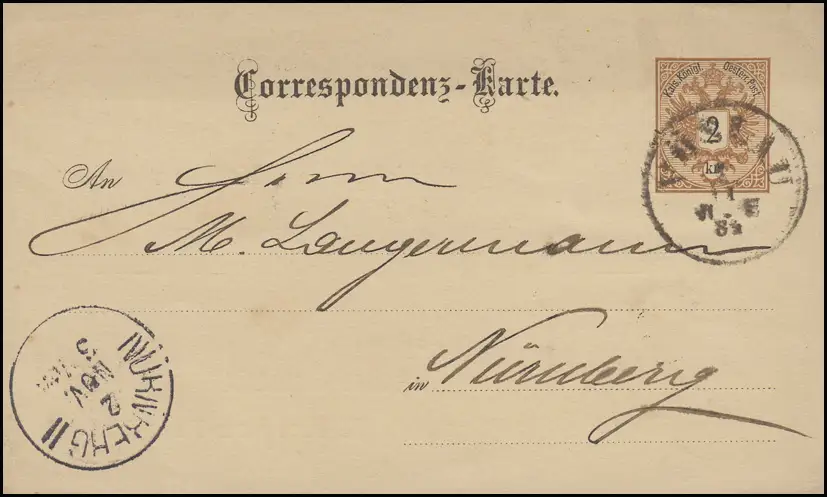 Correspondenz-Karte.
Kais. Königl. Oesterr. Post
2
kr
84
An Herrn
M. Langermann
in Nürnberg
NÜRNBERG II
2
NOV.
5